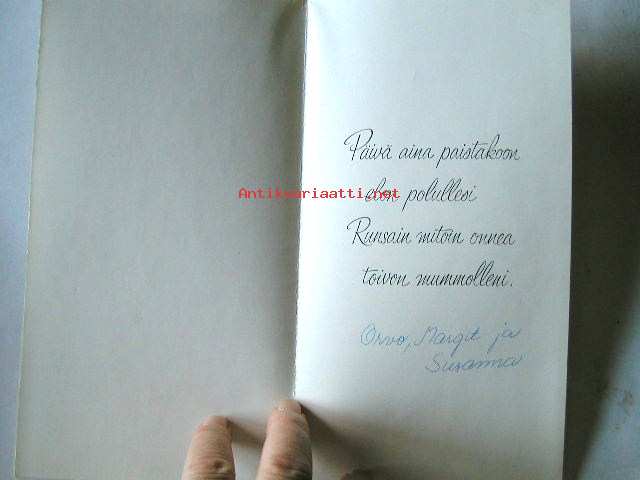 Päivä aina paistakoon
Antikvariaatti.net
elon polullesi
Runsain mitoin onnea
toivon mummolleni.
Orvo, Margit ja
Susanna